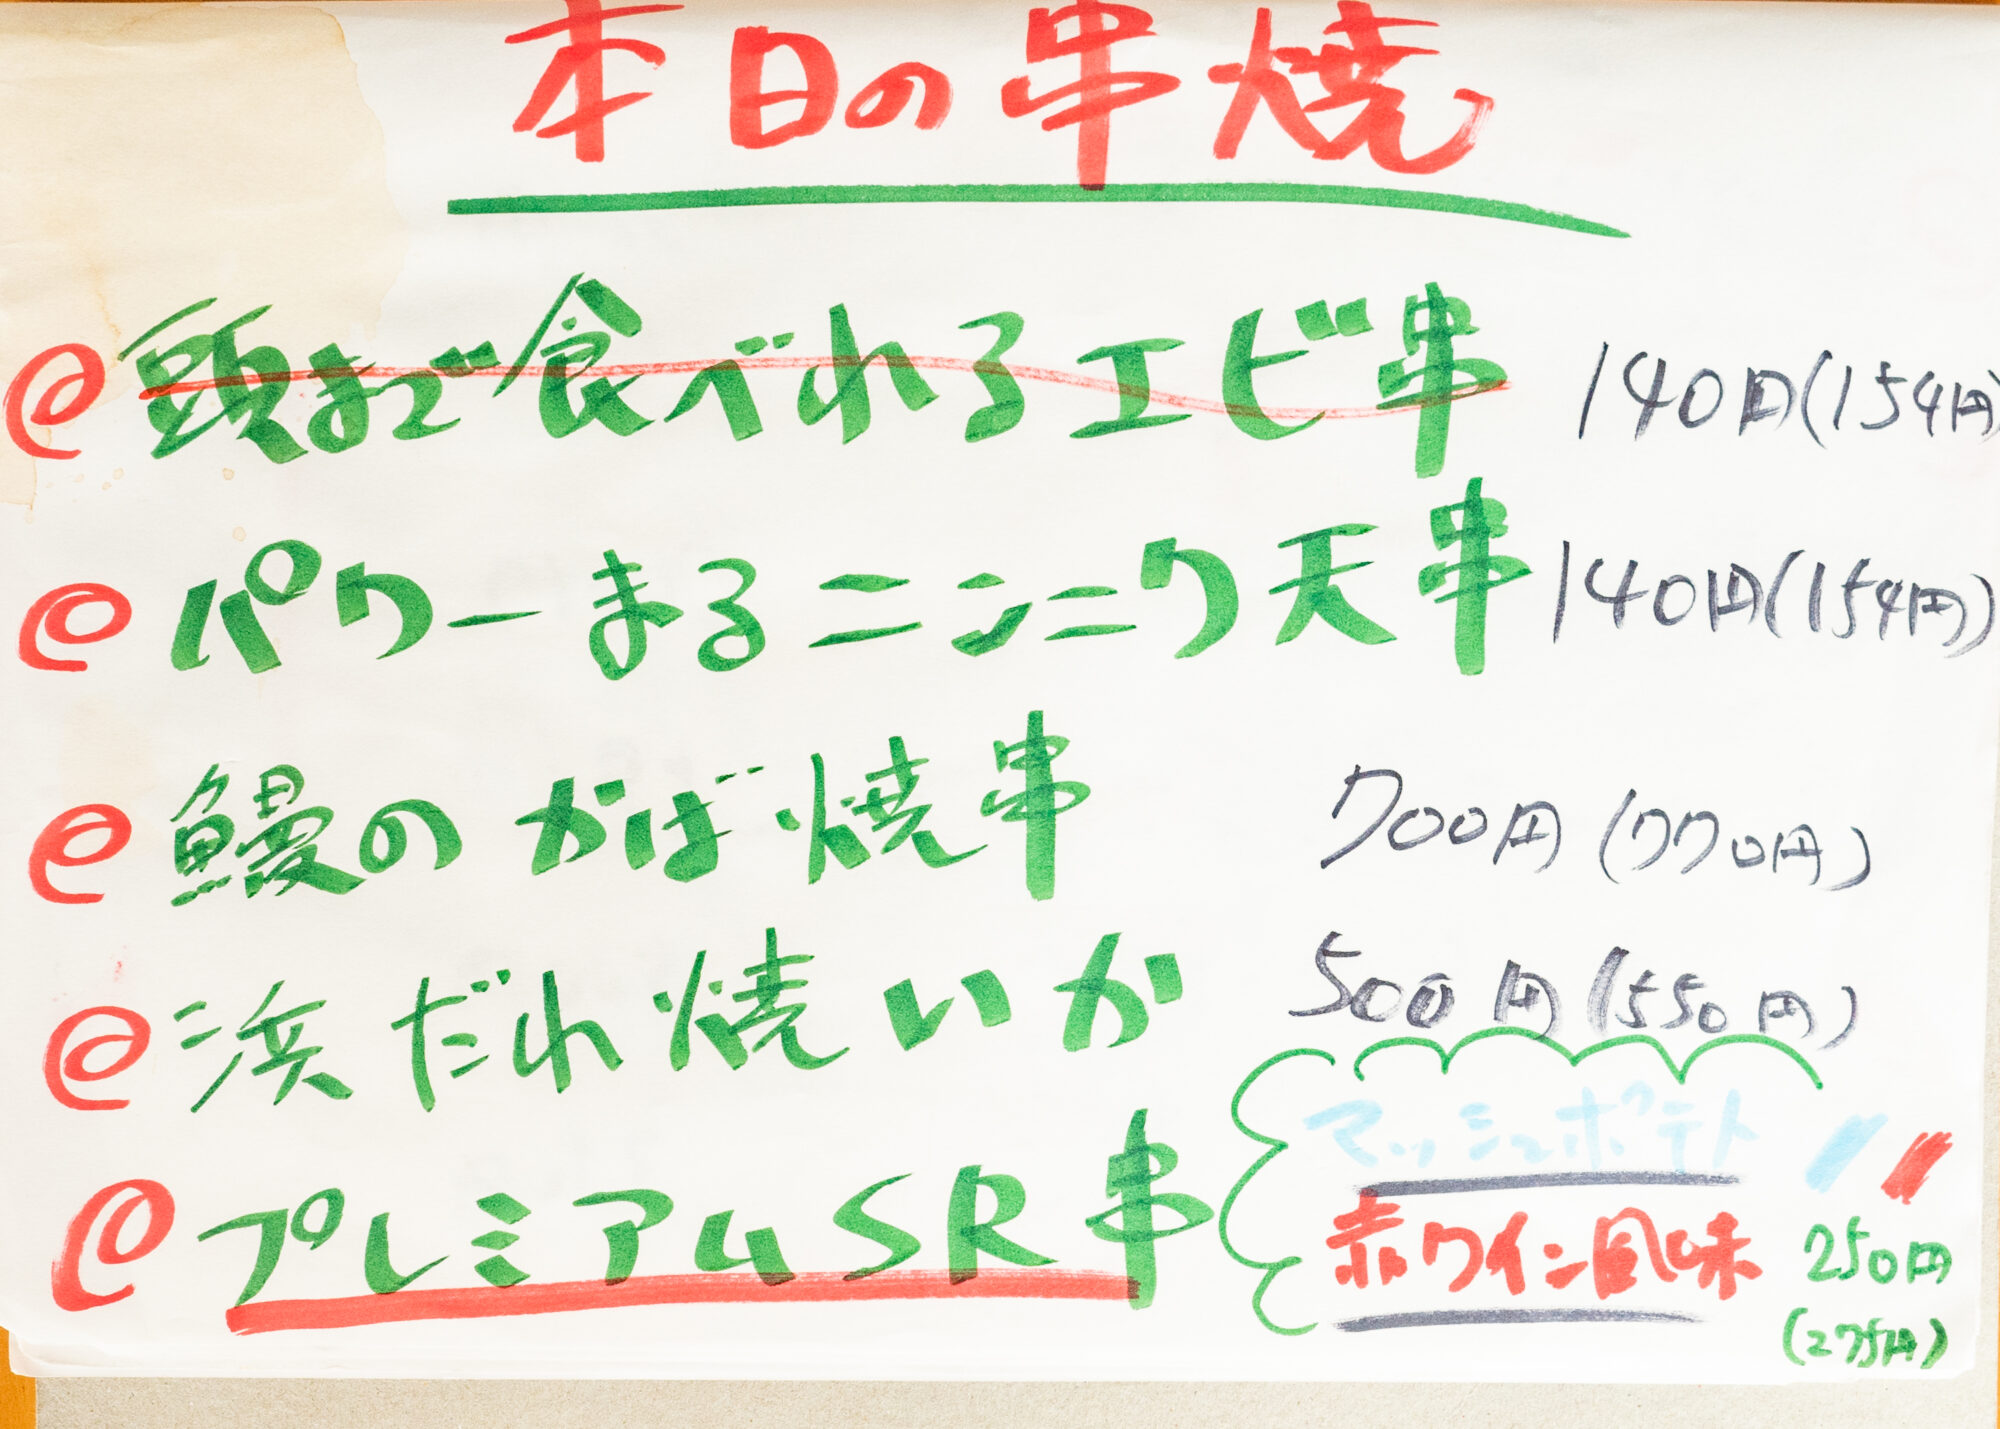 本日の串焼
@頭まで食べれるエビ串 140円(154円)
@パワーまるニンニク天串 140円(154円)
@鰻のかば焼串 700円(770円)
@浜だれ焼いか 500円(550円)
@プレミアムSR串
マッシュポテト
赤ワイン風味 250円
(275円)